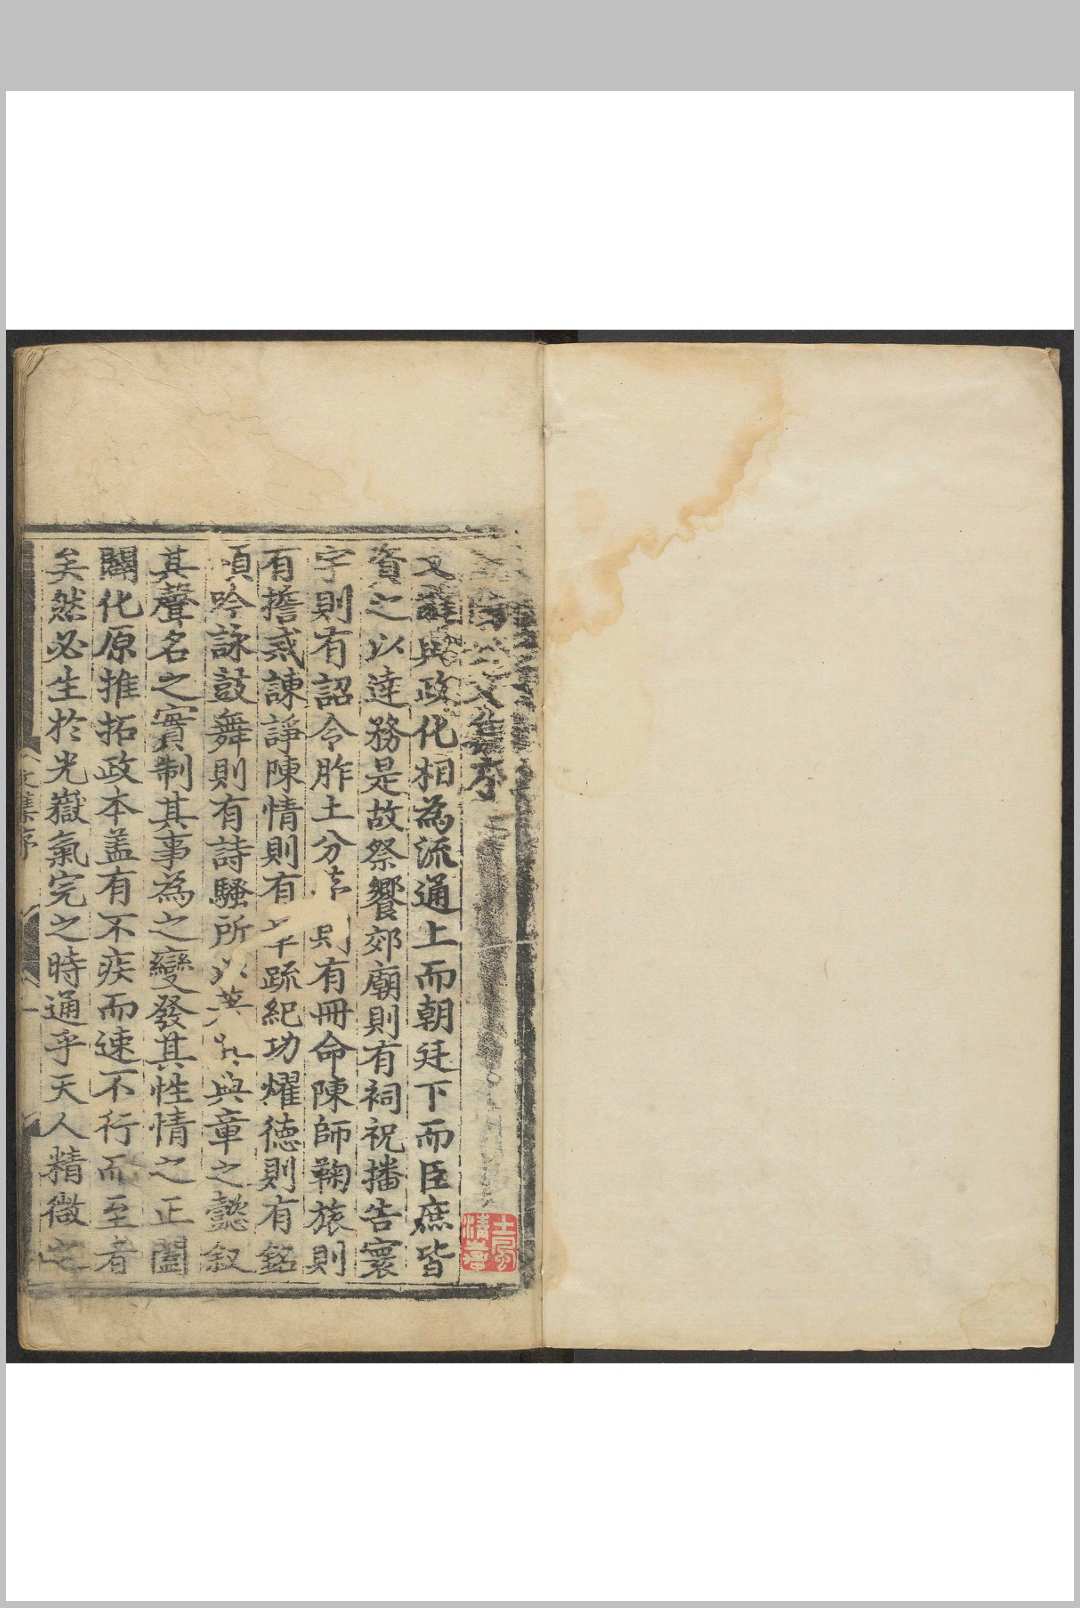 文集序
文辭與政化相為流通上而朝廷下而臣庶皆
資之以達務是故祭饗郊廟則有祠祝播告寰
宇則有詔令胙土分茅則有冊命陳師鞠旅則
有誓戒諫諍陳情則有章疏紀功燿德則有銘
頌吟詠鼓舞則有詩騷所以與章之懿叙
其聲名之實制其事為之變發其性情之正闔
闢化原推拓政本盖有不疾而速不行而至者
矣然必生於光嶽氣完之時通乎天人精微之
文集序